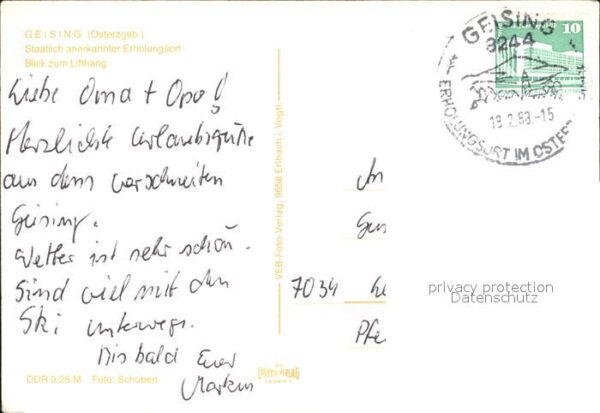 GEISING (Osterzgeb.)
Staatlich anerkannter Erholungsort
Blick zum Lifthang
Liebe Oma + Opa!
Herzlichste Urlaubsgrüße
aus dem verschneiten
Geising.
Wetter ist sehr schön.
Sind viel mit den
Ski unterwegs.
Bis bald Euer
Markus
DDR 0,25 M Foto: Schubert
VEB-Foto-Verlag, 9658 Erlbach i. Vogtl.
GEISING
8244
ERHOLUNGSORT IM OSTER
-15
10
An
7034
Pfe
privacy protection
Datenschutz